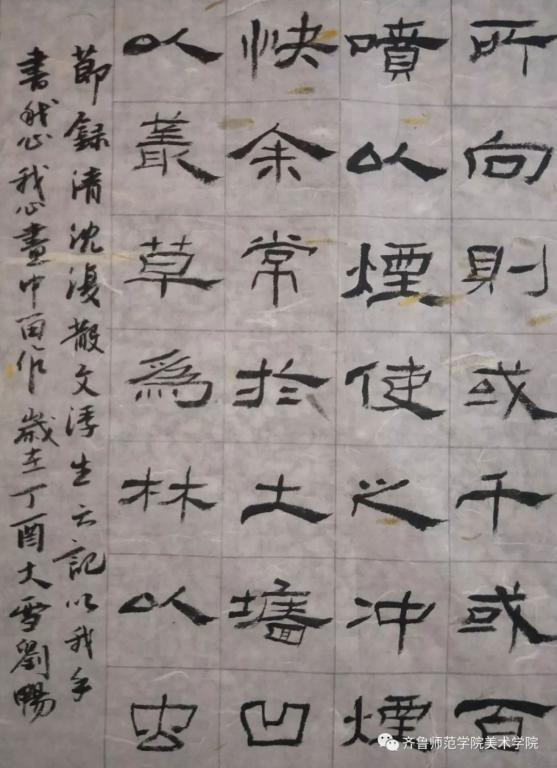 所向則或千或百
噴以煙使之冲煙
快余常於土墻凹
以叢草為林以虫
節錄清沈復散文浮生六記以我手
書我心我心畫中作歲在丁酉大雪劉暢
齐鲁师范学院美术学院